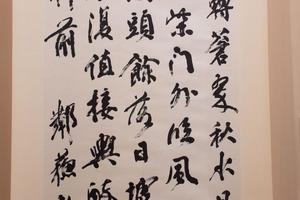 轉蒼翠秋水日
柴门外臨風
頭餘落日墟
復值接輿醉
前 鄰蘇